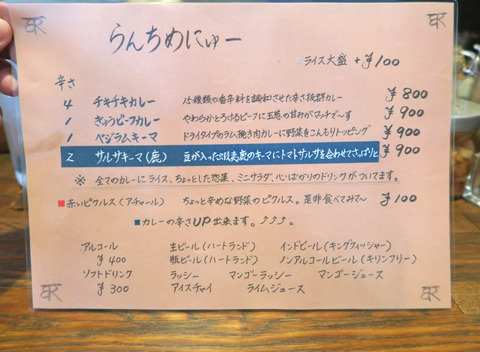 らんちめにゅー
ライス大盛 +¥100
辛さ
4 チキチキカレー 15種類の香辛料を調和させた辛さ抜群カレー ¥800
1 ぎゅうビーフカレー やわらかとろけるビーフに玉葱の甘みがマッチで〜す ¥900
1 ベジラムキーマ ドライタイプのラム挽き肉カレーに野菜をこんもりトッピング ¥900
2 サルサキーマ(鹿) 豆が入った の鹿のキーマにトマトサルサを合わせてさっぱりと ¥900
※ 全てのカレーにライス、ちょっとした惣菜、ミニサラダ、心ばかりのドリンクがついてます。
■赤いピクルス(アチャール) ちょっと辛めな野菜のピクルス。是非食べてみて〜 ¥100
■カレーの辛さUP出来ます。
アルコール 生ビール(ハートランド) インドビール(キングフィッシャー)
¥400 瓶ビール(ハートランド) ノンアルコールビール(キリンフリー)
ソフトドリンク ラッシー マンゴーラッシー マンゴージュース
¥300 アイスチャイ ライムジュース